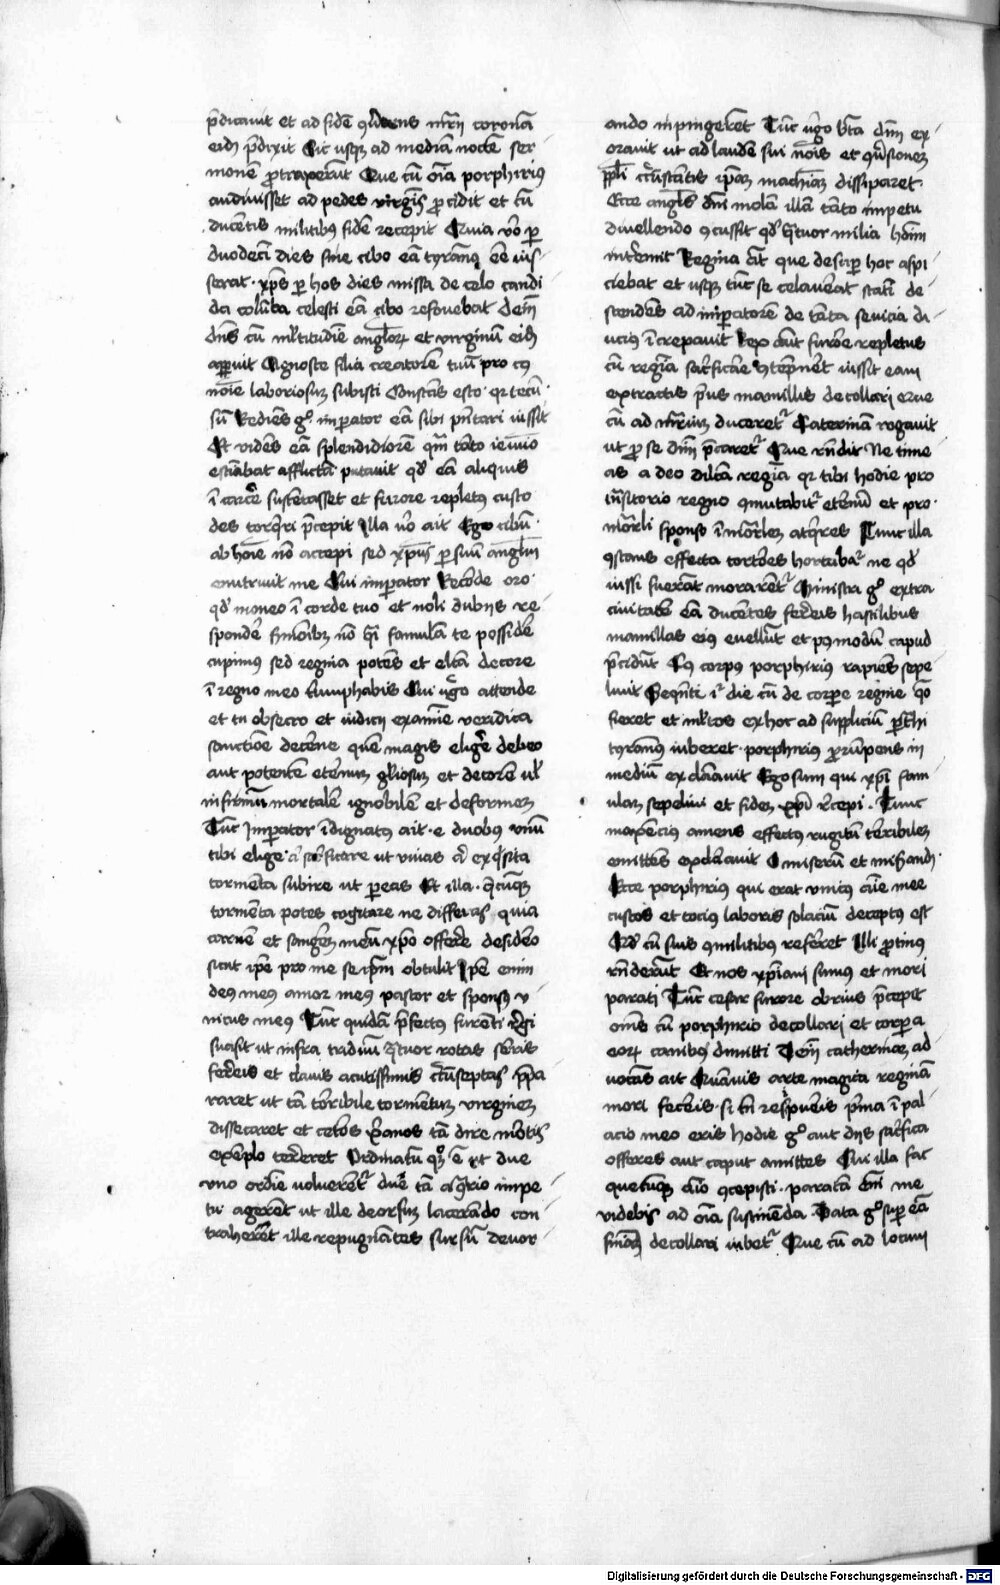 p̄dicauit et ad fidē ꝯuertens mr̄ij coronā
eidē p̄dixit Sic usqꝫ ad mediā noctē ser
monē ꝓtraxerūt Que cū oīa porphirius
audiuisset ad pedes virgīs ꝓcidit et cū
ducentis militibus fidē recepit Quia vō ꝑ
duodecī dies sine cibo eā tyrānꝰ eē ius
serat xp̄s ꝑ hos dies missa de celo candi
da colūba celesti eā cibo refouebat Dein̄
dn̄s cū ml̄titudīe angl̄oꝝ et virginū eidē
apparuit Agnosce filia creatorē tuū pro cꝰ
noīe laboriosum subisti Constās esto qr tecū
sū Rediēs gͦ imꝑator eā sibi pn̄tari iussit
Et vidēs eā splendidiorē quā tāto ieiunio
estiābat afflictā putauit qd̓ eā aliquis
ī carcē sustentasset et furore repletꝰ custo
des torqueri p̄cepit Illa vō ait Ego cibū
ab hoīe nō accepi sed xp̄us ꝑ suū angl̄m
enutriuit me Cui imperator Recōde oro
qd̓ moneo ī corde tuo et noli dubijs re
spondē sermōibꝫ nō qͣi famulā te possidē
cupimus sed regina potēs et elc̄ā decore
ī regno meo triumphabis Cui uͦgo attende
et tu obsecro et iudicij examīe veridica
sanctiōe decerne quē magis eligē debeo
aut potentē eternū gl̄iosum et decorē ul̓
infirmū mortalē ignobilē et deformem
Tūc Imꝑator īdignatus ait e duobus vnū
tibi elige aut sacrificare ut viuas aut exquisita
tormēta subire ut ꝑeas Et illa qͣcūqꝫ
tormēta potes cogitare ne differas quia
carnē et sanguinē meū xp̄o offerre desidero
sicut ip̄e pro me se ip̄m obtulit Ip̄e enim
deꝰ meꝰ amor meꝰ pastor et sponsꝰ v
nicus meꝰ Tūc quidā p̄fectus furēti regi
suasit ut infra triduū qͣtuor rotas serris
ferreis et clauis acutissimis circūseptas ꝑpa
raret ut tā terribile tormentum virginem
dissecaret et ceteros xp̄ianos tā dire mortis
exēplo terreret Ordinatū qꝫ ē ut due
vno ordīe voluerētur due tā cōtrario impe
tu agerēt ut ille deorsum lacerādo con
traherēt ille repugnātes sursū deuor
ando inpingerēt Tūc uͦgo bt̄a dn̄m ex
orauit ut ad laudē sui noīs et ꝯuersionem
ppl̄i circūstātis ip̄am machīam dissiparet
Ecce angl̄s dn̄i molā illā tāto impetu
diuellendo ꝯcussit qd̓ qͣtuor milia hoīm
interemit Regina aūt que desuꝑ hoc aspi
ciebat et usqꝫ tūc se celauerat statī de
scendēs ad imꝑatorē de tāta seuicia di
ucius īcrepauit Rex aūt furore repletus
cū regīa sacrificare ꝯtēpneret iussit eam
extractis prius mamillis decollari Que
cū ad mr̄ium duceretur Caterinam rogauit
ut ꝓ se dn̄m p̄caretur Que rn̄dit Ne time
as a deo dilc̄ta regīa qr tibi hodie pro
trāsitorio regno ꝯmutabitur eternū et pro
mortali sponso īmortalem acquires Tunc illa
ꝯstans effecta tortōes hortabatur ne qd̓
iussi fuerāt morarētur Ministri gͦ extra
ciuitatē eā ducētes ferreis hastilibus
mamillas eiꝰ euellūt et pꝰmodū capud
p̄cidūt Cꝰ corpꝰ porphirius rapiens sepe
liuit Seqn̄ti ī die cū de corpore regine qͦo
fieret et ml̄tos ex hoc ad suppliciū ꝑtrahi
tyrānꝰ iuberet porphirius prorūpens in
mediū exclamauit Ego sum qui xp̄i fam
ulam sepeliui et fidem xp̄i recepi Tunc
maxencius amens effectus rugitū terribilem
emittēs exclamauit O miserū et miserandū
Ecce porphirius qui erat vnicꝰ aīe mee
custos et tocius laboris solaciū deceptꝰ est
Qd̓ cū suis ꝯmilitibus referret Illi protinꝰ
rn̄derūt Et nos xp̄iani sumus et mori
parati Tūc cesar furore ebrius p̄cepit
oēs cū porphirio decollari et corpora
eoꝝ canibus dimitti Dein̄ catherinā ad
uocās ait Quāuis arte magica reginā
mori feceris si tn̄ resipueris p̄ma ī pal
acio meo eris hodie gͦ aut dijs sacrifica
offeres aut caput amittes Cui illa fac
quecūqꝫ aīo ꝯcepisti paratā enim me
videbis ad oīa sustinenda Data gͦ suꝑ eā
snīa decollari iubetur Que cū ad locum
Digitalisierung gefördert durch die Deutsche Forschungsgemeinschaft - DFG